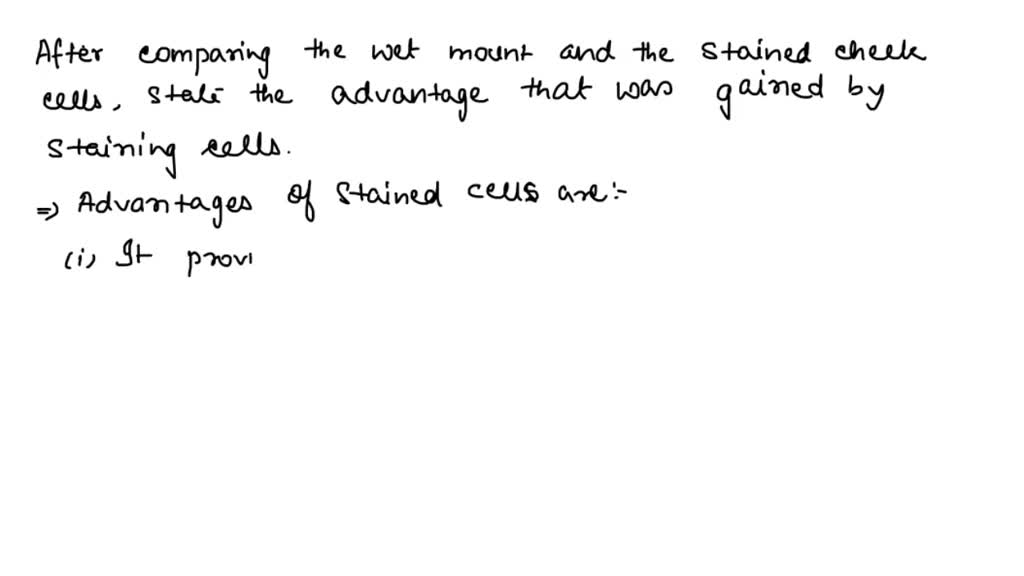 After comparing the wet mount and the stained cheek
cells, state the advantage that was gained by
staining cells.
⇒ Advantages of stained cells are:-
(i) It provi